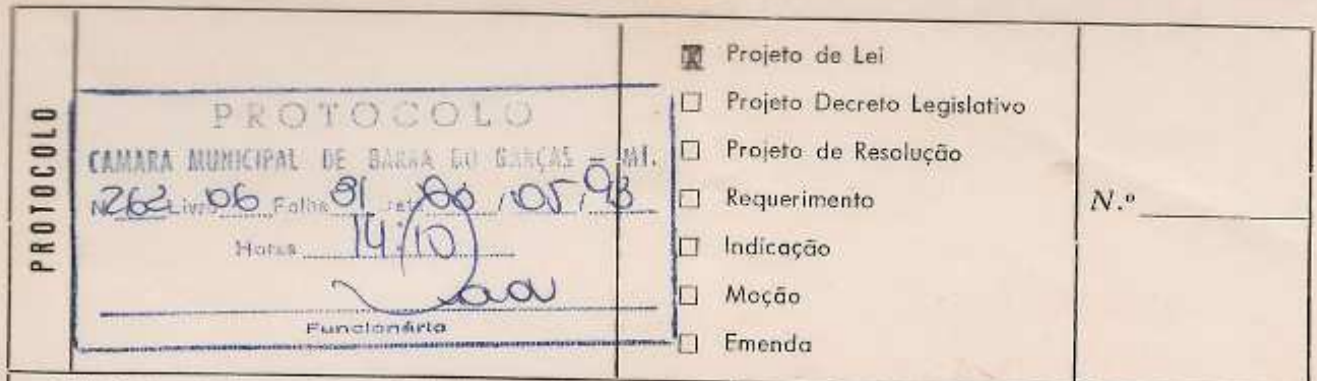 PROTOCOLO
PROTOCOLO
CAMARA MUNICIPAL DE BARRA DO GARÇAS - MT.
Nº 262 Livro 06 Folha 91 /05/93
Horas 14:10
Funcionária
☒ Projeto de Lei
☐ Projeto Decreto Legislativo
☐ Projeto de Resolução
☐ Requerimento
☐ Indicação
☐ Moção
☐ Emenda
N.º